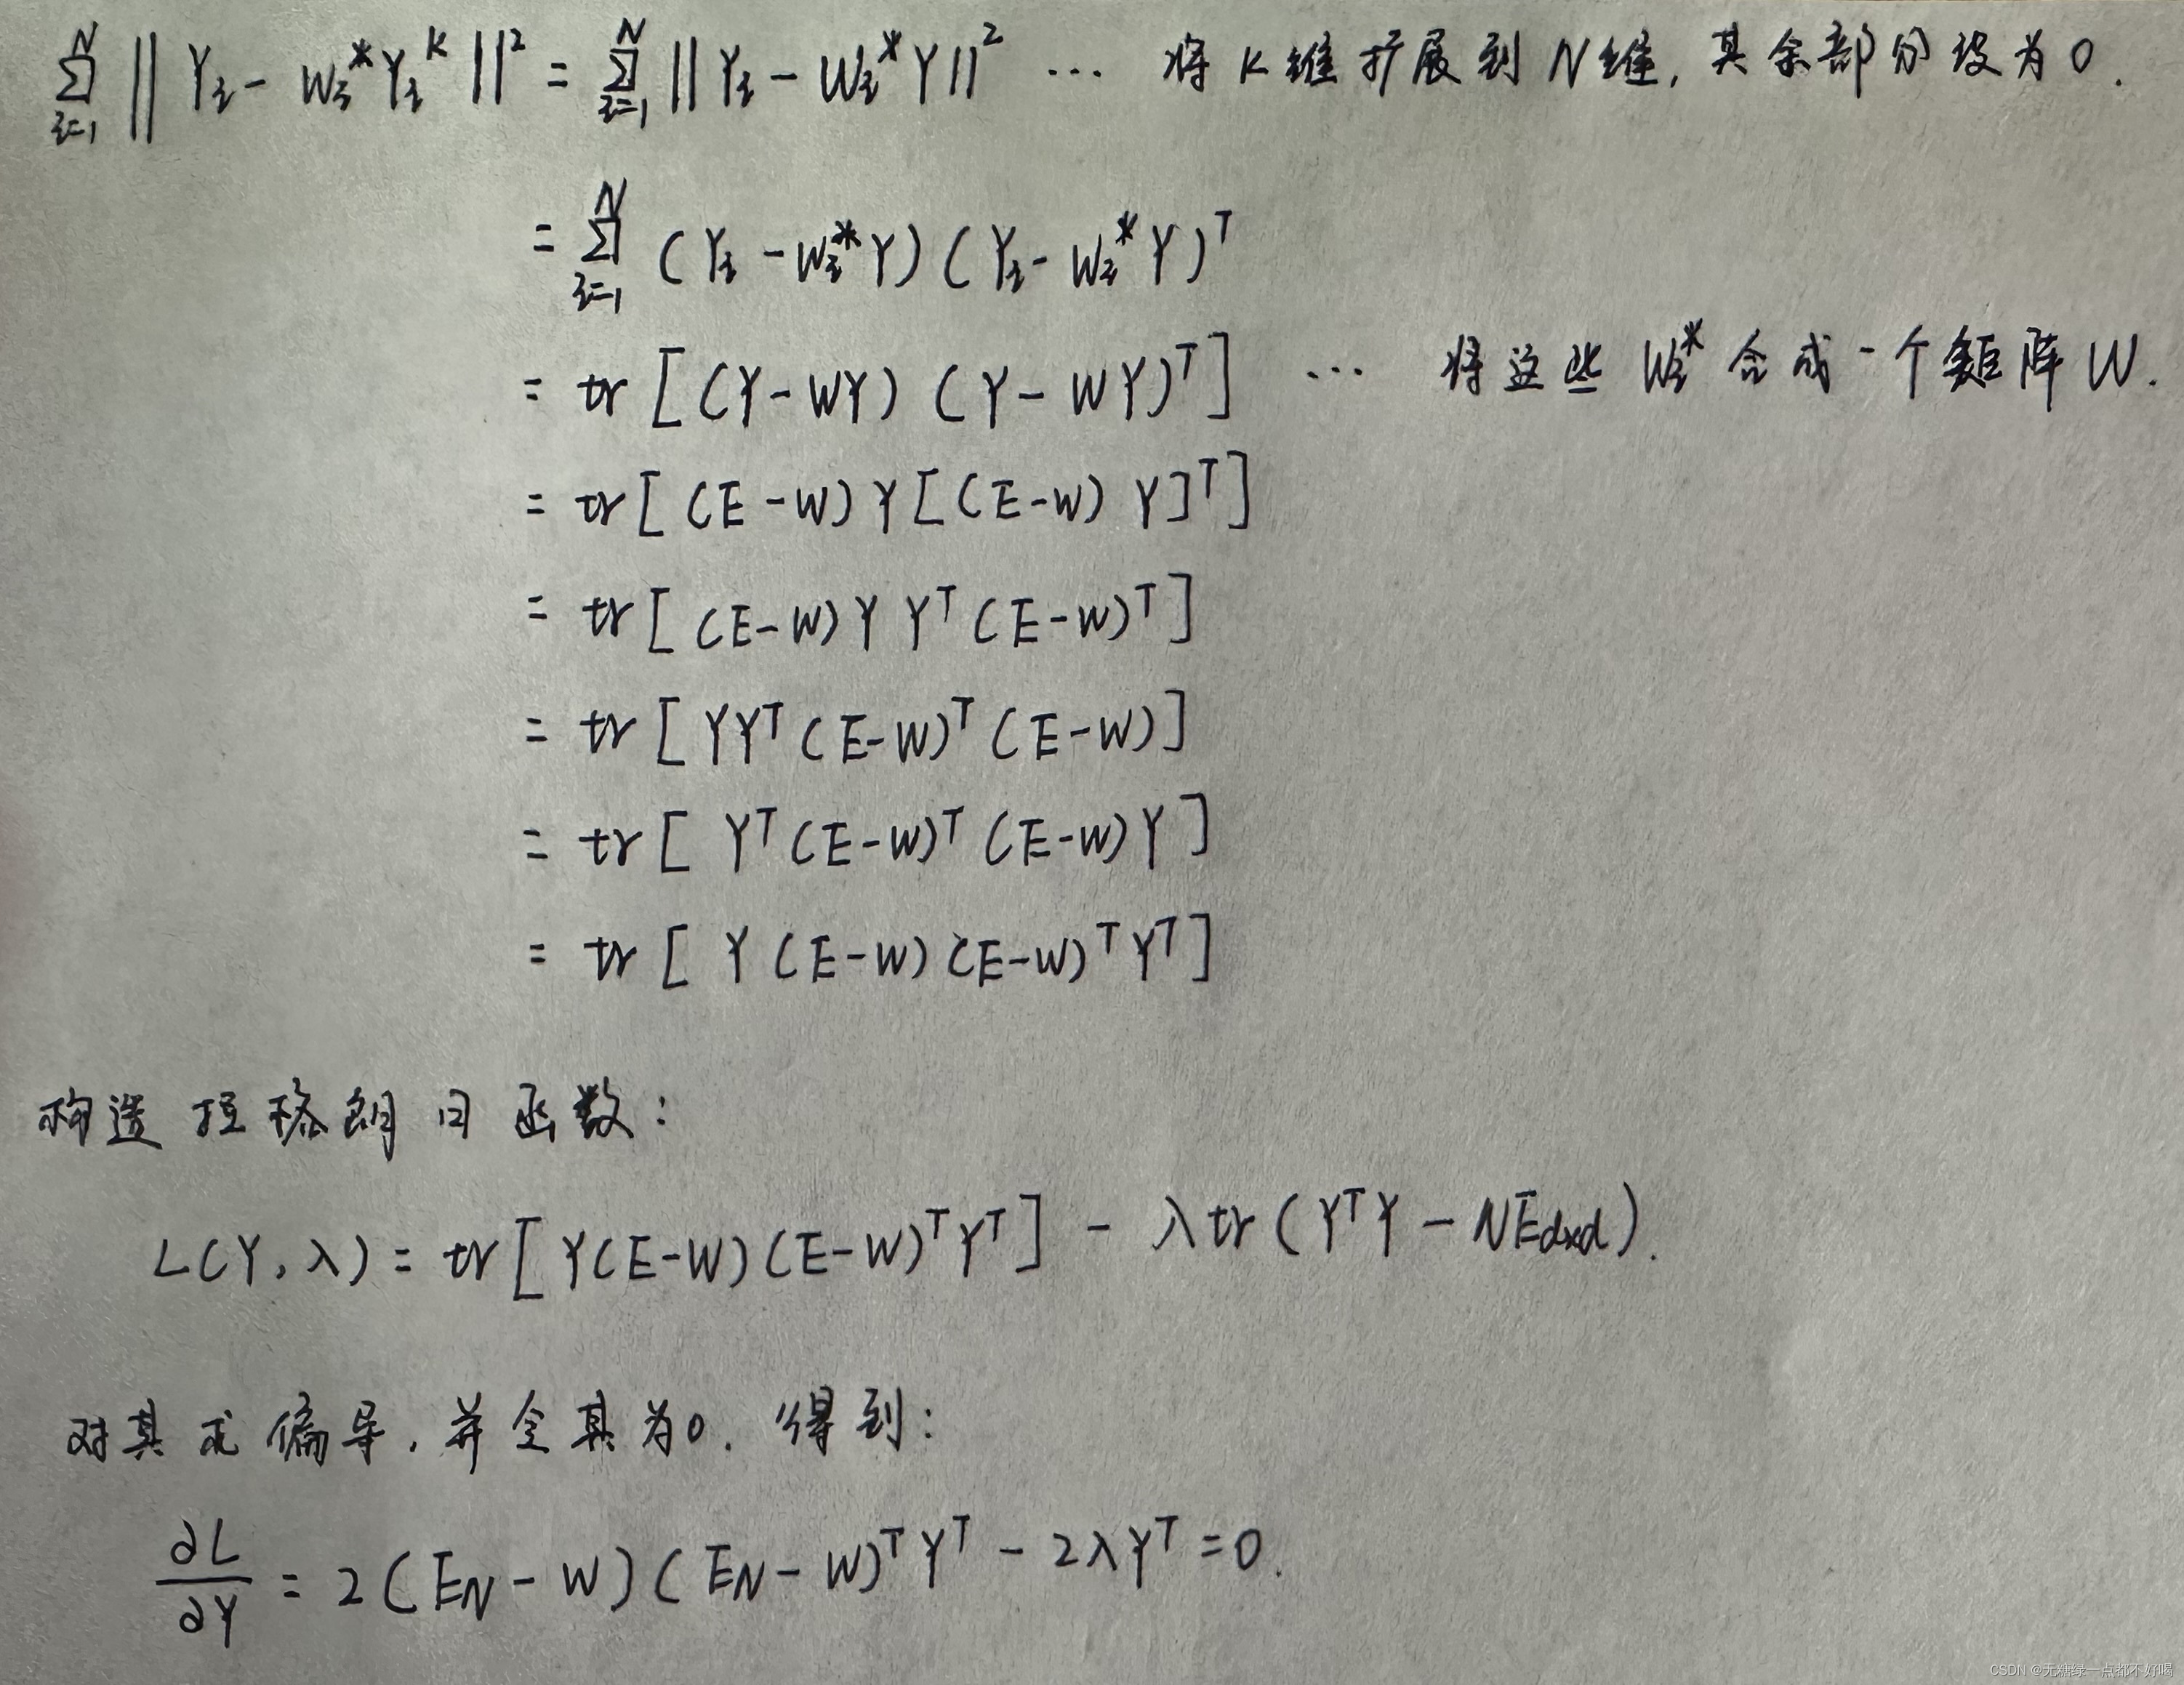 ∑_{i=1}^{N} || Y_i - W_i^* Y_i^K ||^2 = ∑_{i=1}^{N} || Y_i - W_i^* Y ||^2 … 将K维扩展到N维,其余部分设为0.
= ∑_{i=1}^{N} (Y_i - W_i^* Y)(Y_i - W_i^* Y)^T
= tr[(Y - WY)(Y - WY)^T] … 将这些W_i^*合成一个矩阵W.
= tr[(E-W)Y[(E-W)Y]^T]
= tr[(E-W)YY^T(E-W)^T]
= tr[YY^T(E-W)^T(E-W)]
= tr[Y^T(E-W)^T(E-W)Y]
= tr[Y(E-W)(E-W)^TY^T]
构造拉格朗日函数:
L(Y,λ) = tr[Y(E-W)(E-W)^TY^T] - λtr(Y^TY - NE_{d×d}).
对其求偏导,并令其为0.得到:
∂L/∂Y = 2(E_N - W)(E_N - W)^TY^T - 2λY^T = 0.
CSDN @无糖绿一点都不好喝